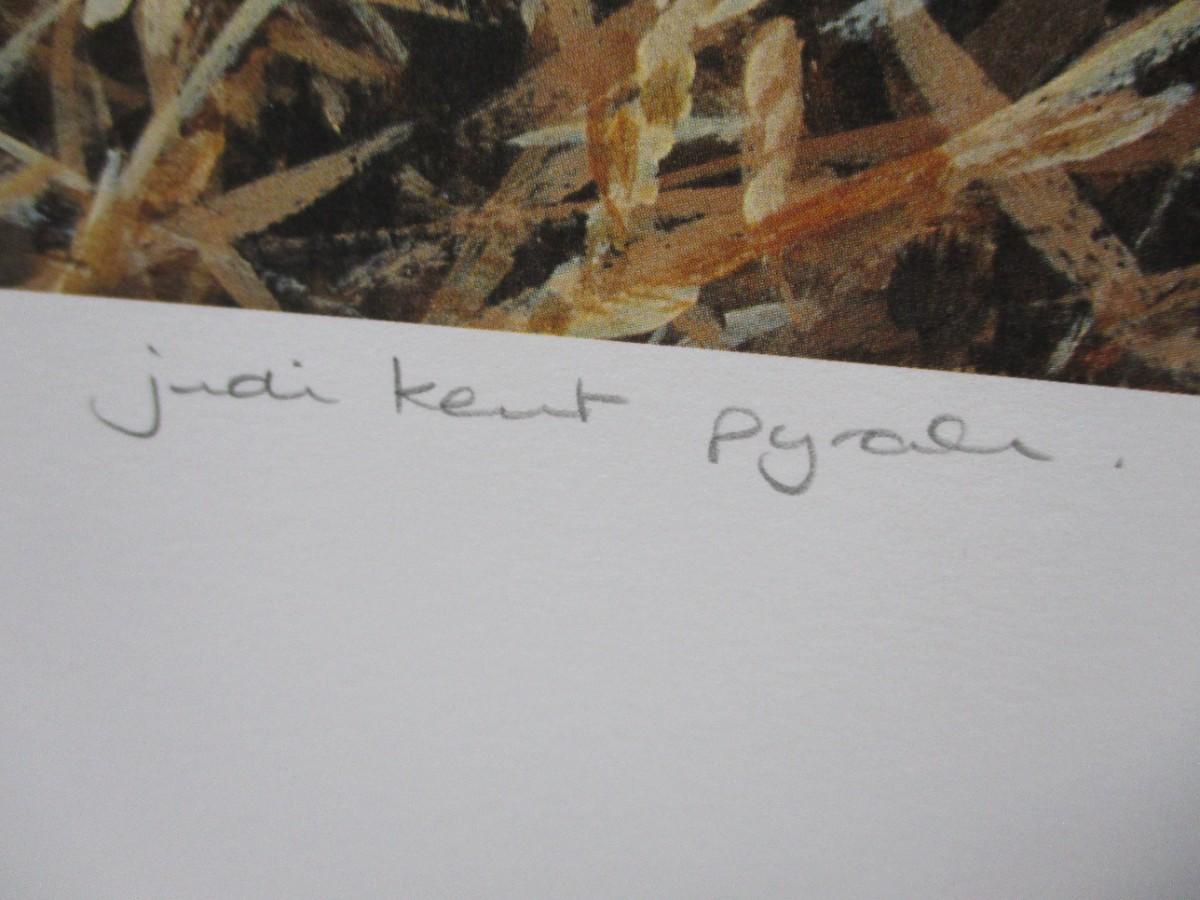 judi kent pyrah.